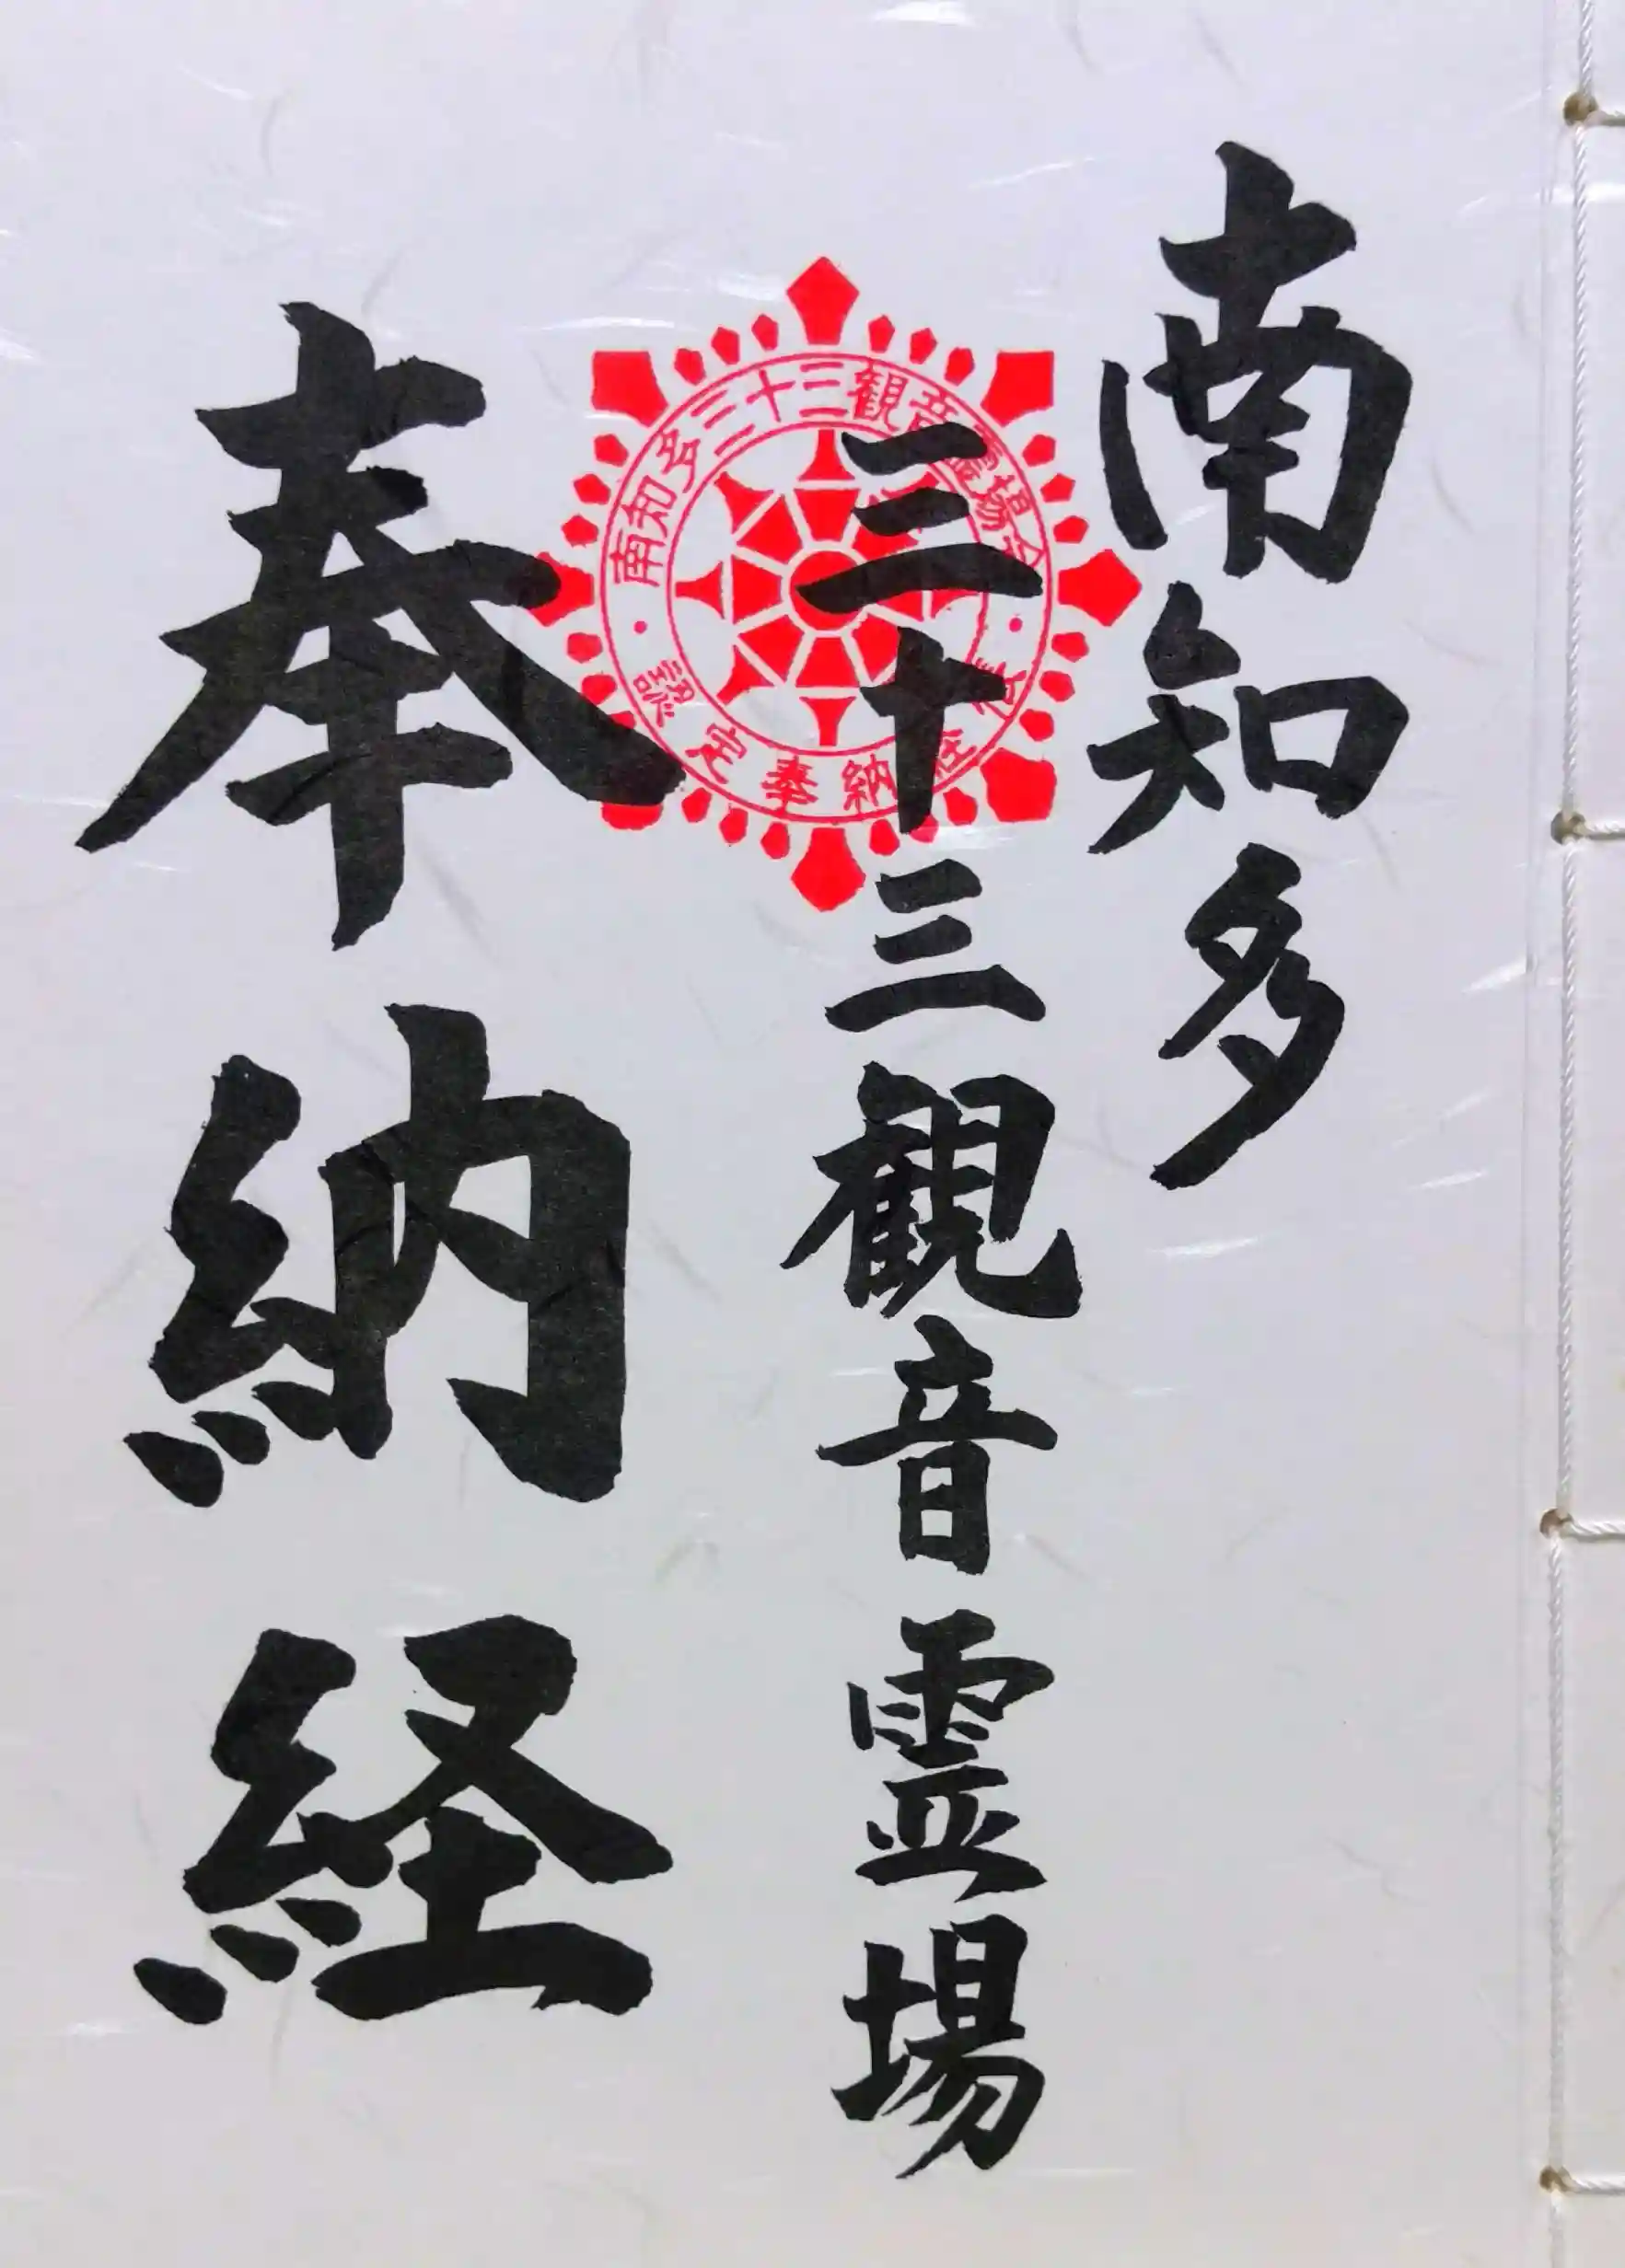 南知多
三十三観音霊場
奉納経
南知多三十三観音霊場会
認定奉納経